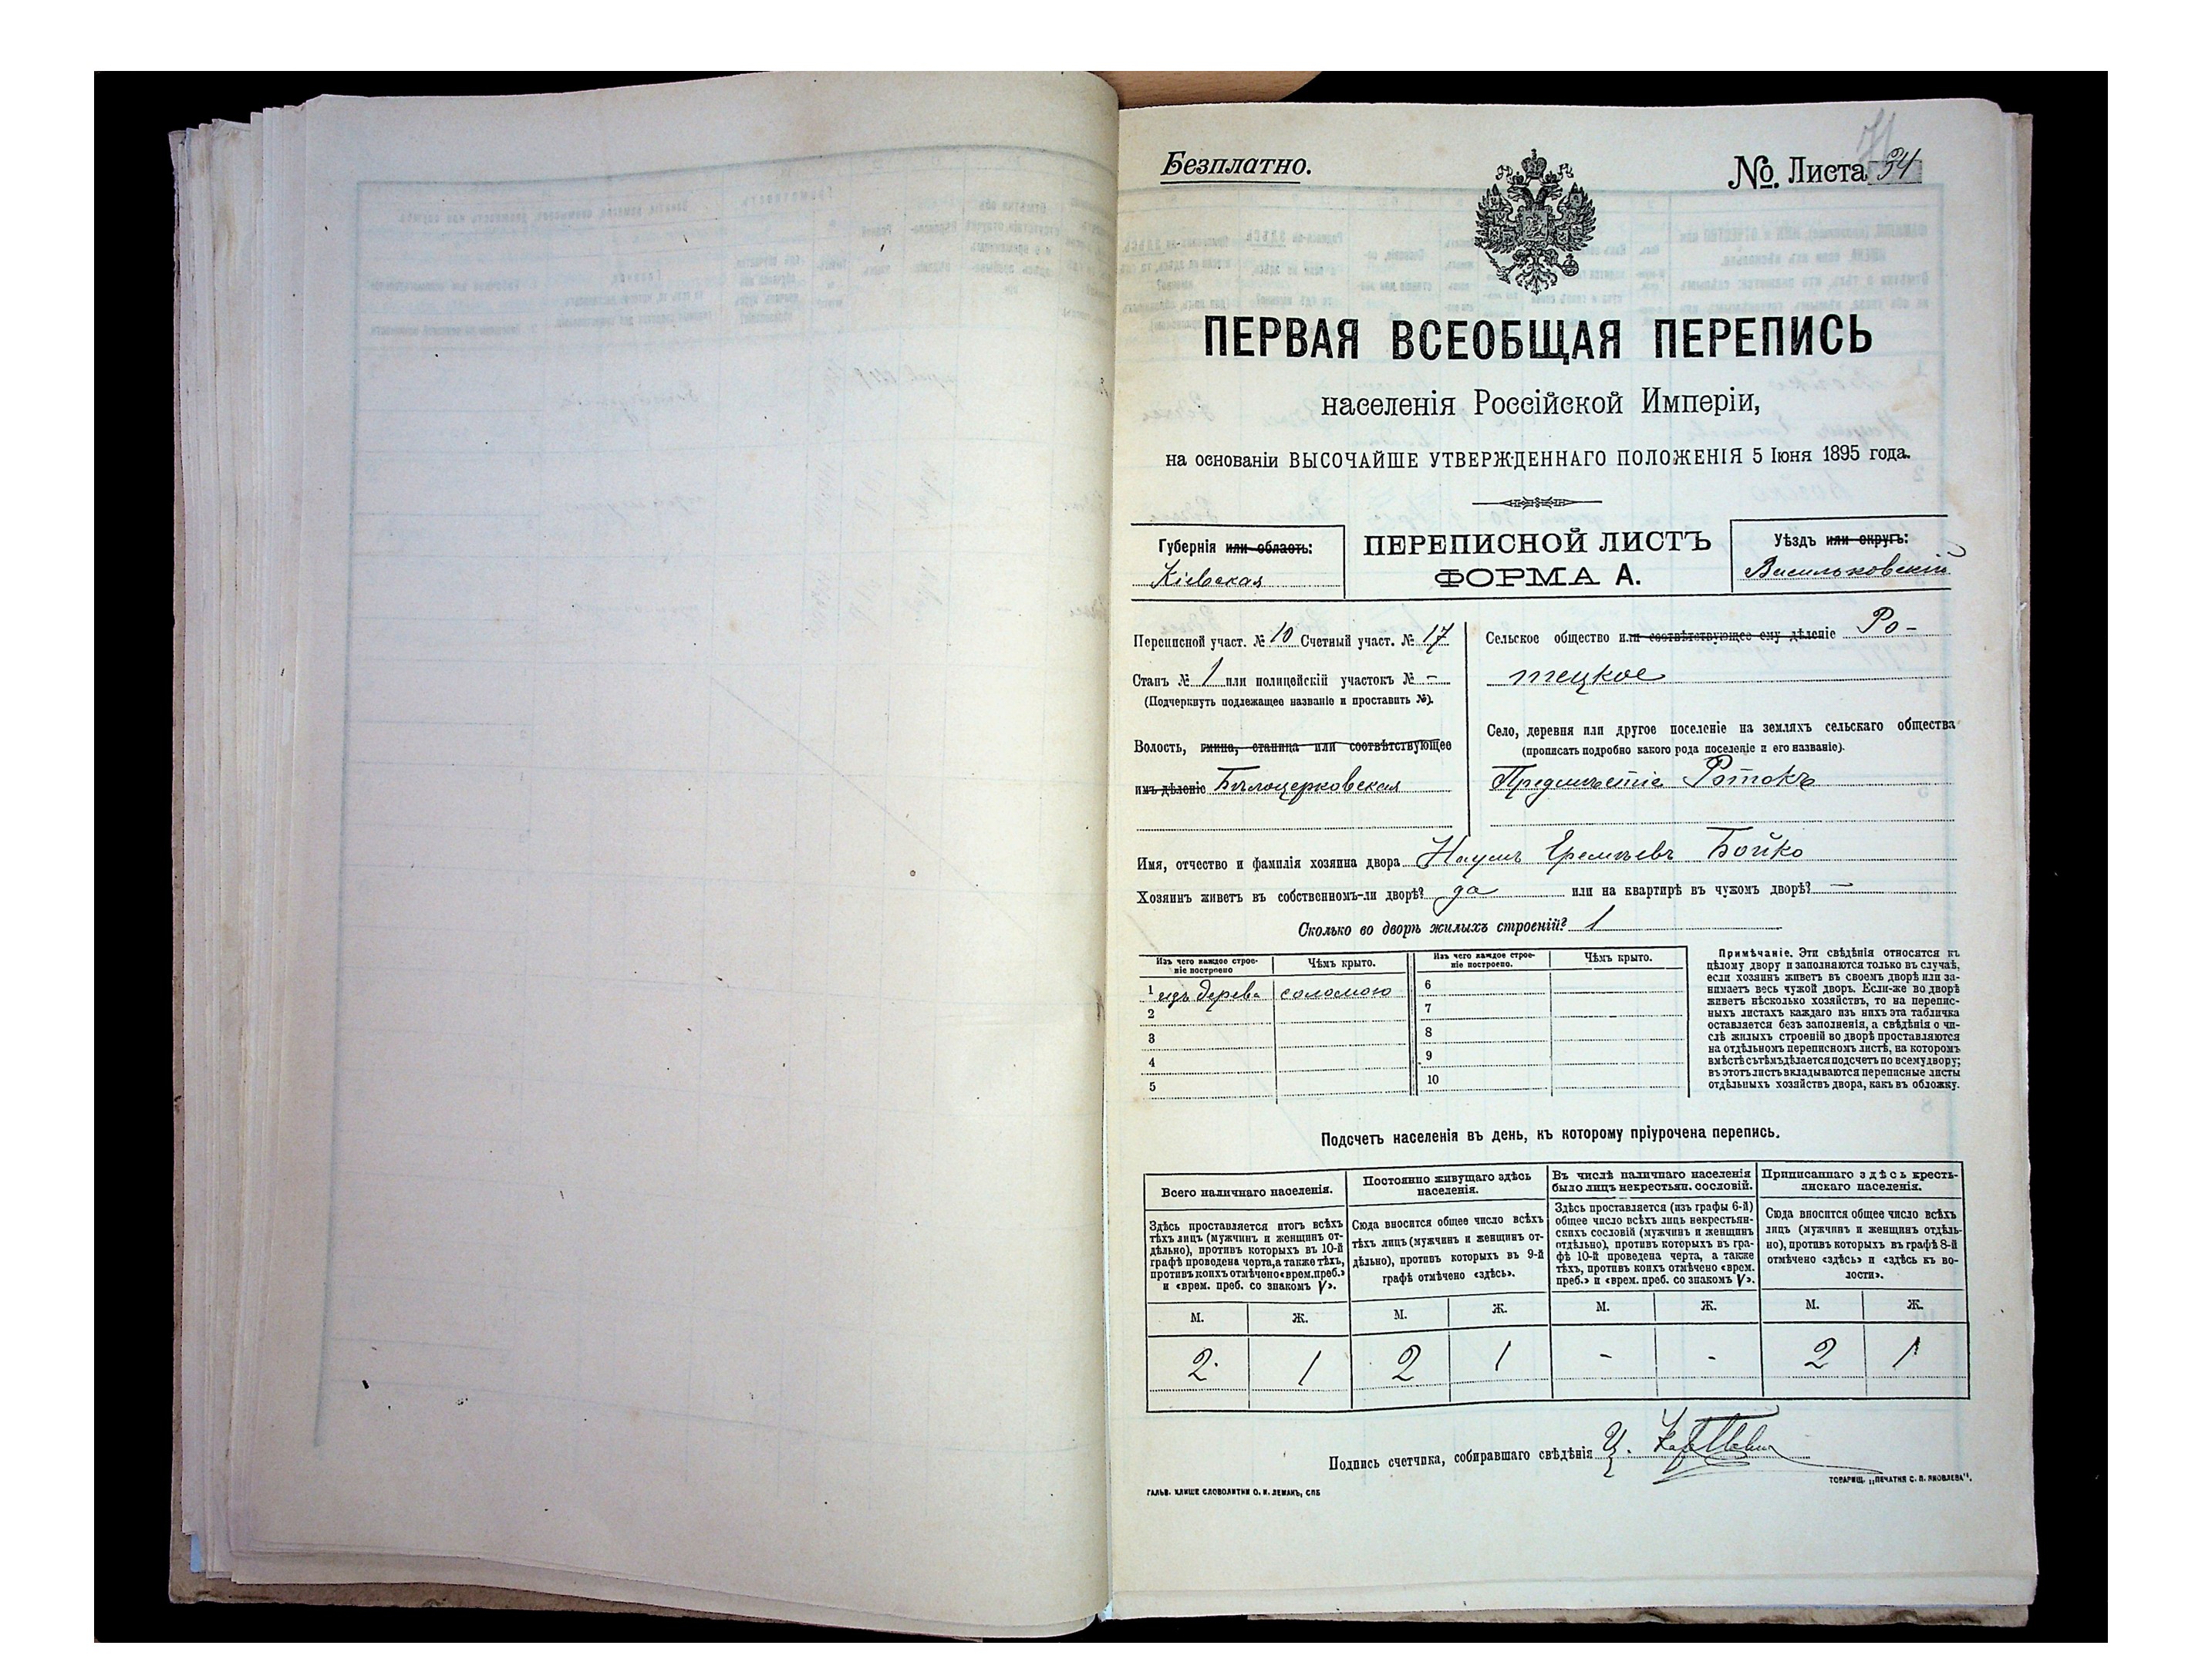 Безплатно.
№. Листа 34
ПЕРВАЯ ВСЕОБЩАЯ ПЕРЕПИСЬ
населенія Россійской Имперіи,
на основаніи ВЫСОЧАЙШЕ УТВЕРЖДЕННАГО ПОЛОЖЕНІЯ 5 Іюня 1895 года.
Губернія или область:
Кіевская
ПЕРЕПИСНОЙ ЛИСТЪ
ФОРМА А.
Уѣздъ или округъ:
Васильковскій
Переписной участ. № 10 Счетный участ. № 17
Станъ № 1 или полицейскій участокъ № -
(Подчеркнуть подлежащее названіе и проставить №).
Волость, гмина, станица или соотвѣтствующее
имъ дѣленіе Бѣлоцерковская
Сельское общество или соотвѣтствующее ему дѣленіе Ро-
тецкое
Село, деревня или другое поселеніе на земляхъ сельскаго общества
(прописать подробно какого рода поселеніе и его названіе).
Предмѣстіе Ротокъ
Имя, отчество и фамилія хозяина двора Наумъ Еремѣевъ Бойко
Хозяинъ живетъ въ собственномъ-ли дворѣ? да или на квартирѣ въ чужомъ дворѣ? —
Сколько во дворѣ жилыхъ строеній? 1
Изъ чего каждое строе-
ніе построено
Чѣмъ крыто.
1 изъ дерева соломою
2
3
4
5
Изъ чего каждое строе-
ніе построено.
Чѣмъ крыто.
6
7
8
9
10
Примѣчаніе. Эти свѣдѣнія относятся къ
цѣлому двору и заполняются только въ случаѣ,
если хозяинъ живетъ въ своемъ дворѣ или за-
нимаетъ весь чужой дворъ. Если-же во дворѣ
живетъ нѣсколько хозяйствъ, то на перепис-
ныхъ листахъ каждаго изъ нихъ эта табличка
оставляется безъ заполненія, а свѣдѣнія о чи-
слѣ жилыхъ строеній во дворѣ проставляются
на отдѣльномъ переписномъ листѣ, на которомъ
вмѣстѣ съ тѣмъ дѣлается подсчетъ по всему двору;
въ этотъ листъ вкладываются переписные листы
отдѣльныхъ хозяйствъ двора, какъ въ обложку.
Подсчетъ населенія въ день, къ которому пріурочена перепись.
Всего наличнаго населенія.
Здѣсь проставляется итогъ всѣхъ
тѣхъ лицъ (мужчинъ и женщинъ от-
дѣльно), противъ которыхъ въ 10-й
графѣ проведена черта, а также тѣхъ,
противъ коихъ отмѣчено «врем. преб.»
и «врем. преб. со знакомъ V».
М. Ж.
2 1
Постоянно живущаго здѣсь
населенія.
Сюда вносится общее число всѣхъ
тѣхъ лицъ (мужчинъ и женщинъ от-
дѣльно), противъ которыхъ въ 9-й
графѣ отмѣчено «здѣсь».
М. Ж.
2 1
Въ числѣ наличнаго населенія
было лицъ некрестьян. сословій.
Здѣсь проставляется (изъ графы 6-й)
общее число всѣхъ лицъ некрестьян-
скихъ сословій (мужчинъ и женщинъ
отдѣльно), противъ которыхъ въ гра-
фѣ 10-й проведена черта, а также
тѣхъ, противъ коихъ отмѣчено «врем.
преб.» и «врем. преб. со знакомъ V».
М. Ж.
- -
Приписаннаго здѣсь кресть-
янскаго населенія.
Сюда вносится общее число всѣхъ
лицъ (мужчинъ и женщинъ отдѣль-
но), противъ которыхъ въ графѣ 8-й
отмѣчено «здѣсь» и «здѣсь къ во-
лости».
М. Ж.
2 1
Подпись счетчика, собиравшаго свѣдѣнія
ГАЛЬВ. КЛИШЕ СЛОВОЛИТНИ О. И. ЛЕМАНЪ, СПБ
ТОВАРИЩ. „ПЕЧАТНЯ С. П. ЯКОВЛЕВА“.